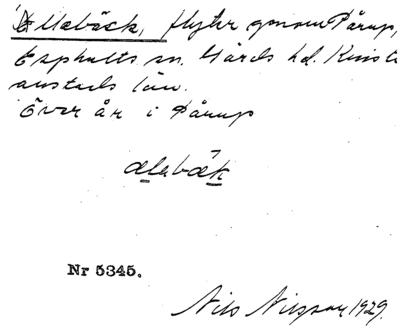 Ellebäck, flyter genom Pårup,
Esphults sn. Gärds hd. Kristi
anstads län.
Över år i Pårup
ælabäk
Nr 5345.
Nils Nilsson 1929.